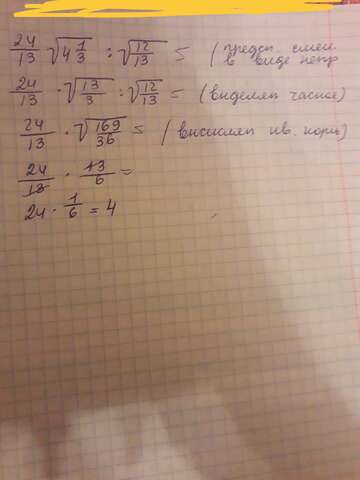 24/13 √(4 1/3) : √(12/13) = (предст. смеш.
в виде непр
24/13 · √(13/3) : √(12/13) = (выделяем частное)
24/13 · √(169/36) = (высисляем кв. корн)
24/13 · 13/6 =
24 · 1/6 = 4